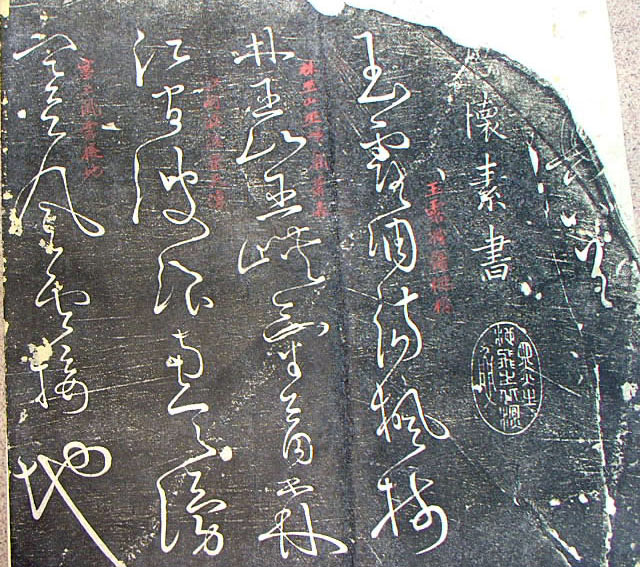 懷素書
玉露凋傷楓樹
玉露凋傷楓樹
林巫山巫峽氣蕭森
林巫山巫峽氣蕭森
江間波浪兼天湧
江間波浪兼天湧
塞上風雲接地
塞上風雲接地